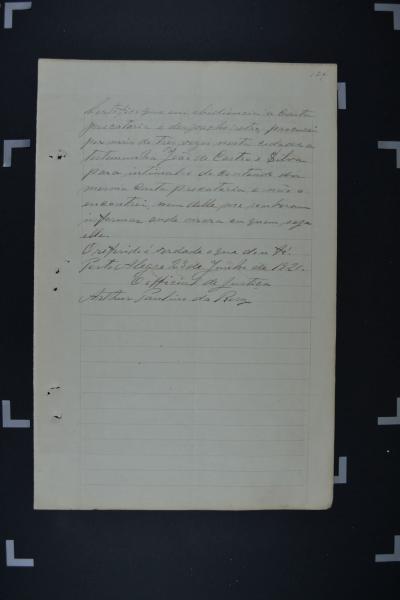 Certifico que em obediencia a Carta
precatoria e despacho retro, procurei
por mais de tres vezes nesta cidade a
testemunha João de Castro e Silva
para intimal-o do conteudo da
mesma Carta precatoria e não o
encontrei, nem delle me souberam
informar onde mora ou quem seja
elle.
O referido é verdade e que dou fé.
Porto Alegre 23 de Junho de 1921.
O official de Justiça
Arthur Paulino da Rosa